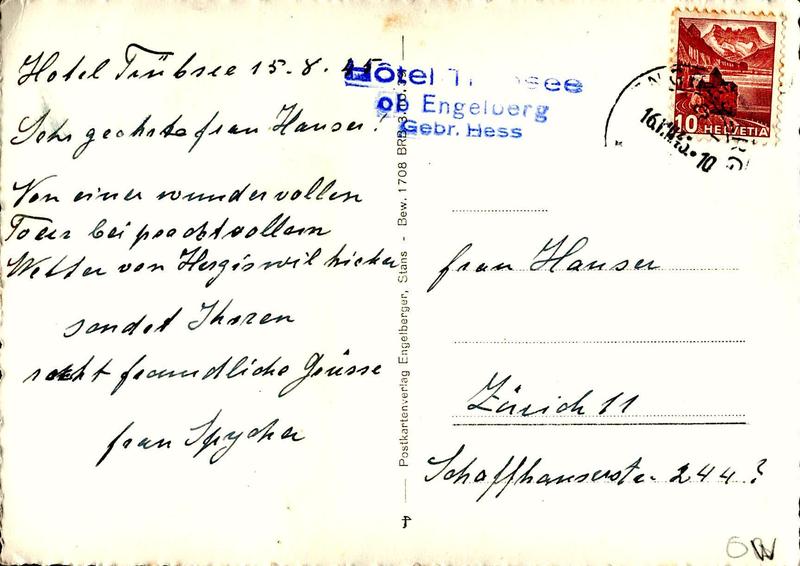 Hotel Trübsee 15-8.45
Sehr geehrte frau Hauser!
Von einer wundervollen
Tour bei prachtvollem
Wetter von Hergiswil hieher
sendet Ihnen
recht freundliche Grüsse
frau Spycher
Hôtel Trübsee
ob Engelberg
Gebr. Hess
Postkartenverlag Engelberger, Stans - Bew. 1708 BRB 3.
10 HELVETIA
frau Hauser
Zürich 11
Schaffhauserstr. 244?
OW